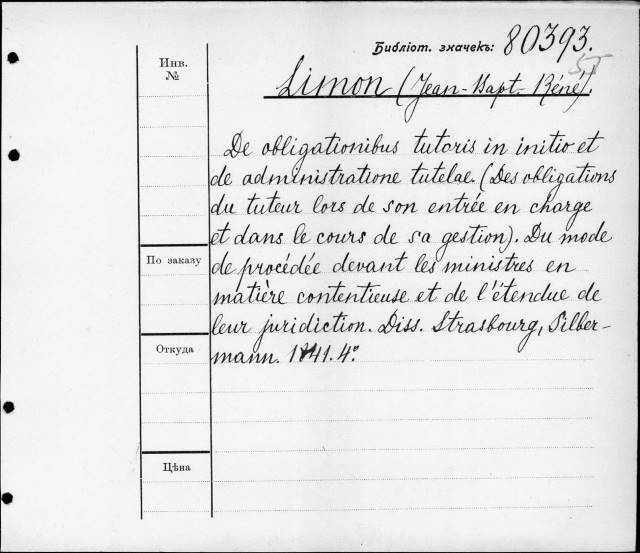 Библіот. значекъ: 80393.
57
Инв.
№
Limon (Jean-Bapt.-Réné).
De obligationibus tutoris in initio et
de administratione tutelae. (Des obligations
du tuteur lors de son entrée en charge
et dans le cours de sa gestion). Du mode
По заказу
de procédée devant les ministres en
matière contentieuse et de l'étendue de
leur juridiction. Diss. Strasbourg, Silber-
Откуда
mann. 1841. 4º
Цѣна